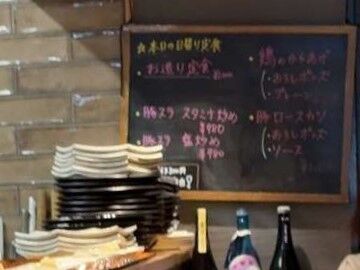 ☆本日の日替り定食
・お造り定食
・豚バラ スタミナ炒め
¥980
・豚バラ 塩炒め
¥980
・鶏のからあげ
(・おろしポン酢
・プレーン
・豚ロースカツ
(・おろしポン酢
・ソース